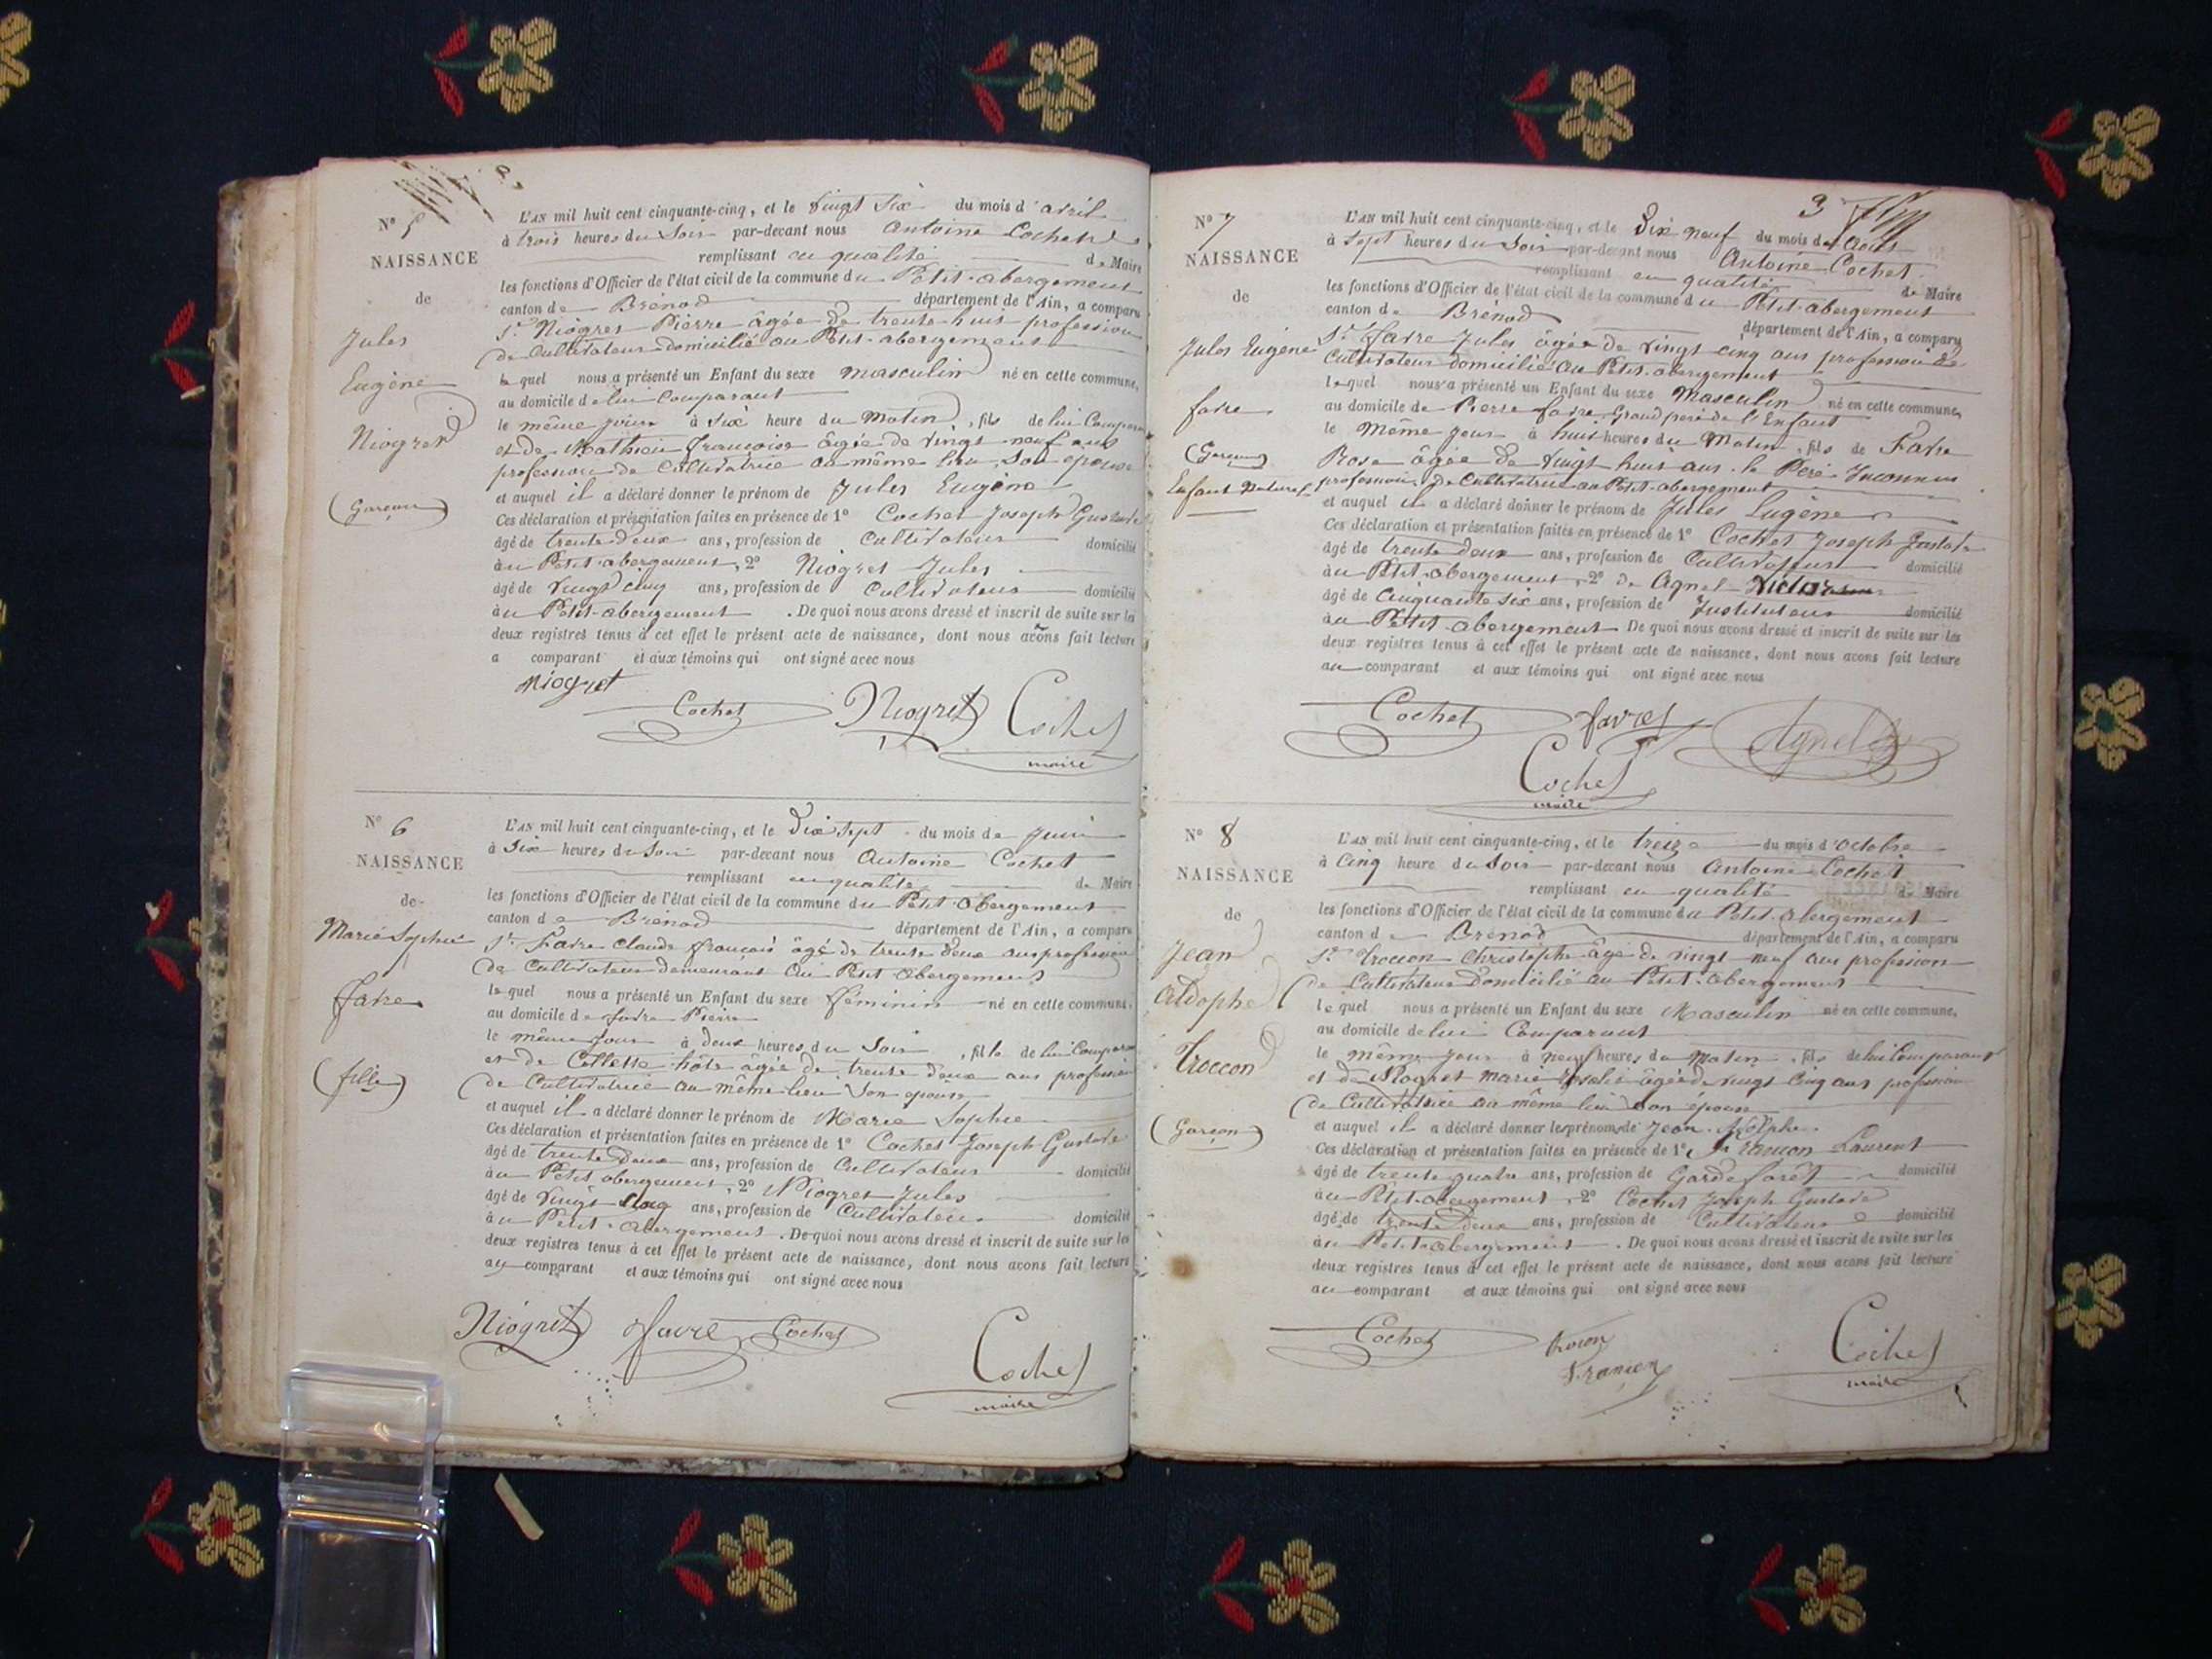 2
N° 5
NAISSANCE
de
Jules
Eugène
Niogret
(Garçon)
L'AN mil huit cent cinquante-cinq, et le vingt six du mois d'avril
à trois heures du Soir par-devant nous Antoine Cochet
remplissant en qualité de Maire
les fonctions d'Officier de l'état civil de la commune du Petit-abergement
canton de Brénod département de l'Ain, a comparu
Sr Niogret Pierre âgée de trente-huit profession
de Cultivateur domicilié au Petit-abergement
lequel nous a présenté un Enfant du sexe masculin né en cette commune,
au domicile de lui Comparant
le même jour à Six heure du Matin, fils de lui Comparant
et de Mathieu françoise âgée de vingt-neuf ans
profession de Cultivatrice au même lieu, Son épouse
et auquel il a déclaré donner le prénom de Jules Eugène
Ces déclaration et présentation faites en présence de 1° Cochet Joseph Gustave
âgé de trente-deux ans, profession de Cultivateur domicilié
au Petit-abergement, 2° Niogret Jules
âgé de vingt cinq ans, profession de Cultivateur domicilié
au Petit-abergement. De quoi nous avons dressé et inscrit de suite sur les
deux registres tenus à cet effet le présent acte de naissance, dont nous avons fait lecture
a comparant et aux témoins qui ont signé avec nous
Niogret
Cochet Niogret Cochet
maire
N° 6
NAISSANCE
de
Marie Sophie
favre
(fille)
L'AN mil huit cent cinquante-cinq, et le Dix Sept du mois de Juin
à Six heures du Soir par-devant nous Antoine Cochet
remplissant en qualité de Maire
les fonctions d'Officier de l'état civil de la commune du Petit-abergement
canton de Brénod département de l'Ain, a comparu
Sr Favre Claude françois âgé de trente deux ans profession
de Cultivateur demeurant au Petit abergement
lequel nous a présenté un Enfant du sexe féminin né en cette commune,
au domicile de favre Pierre
le même jour à deux heures du Soir, fille de lui Comparant
et de Collette hôte âgée de trente deux ans profession
de Cultivatrice au même lieu Son épouse
et auquel il a déclaré donner le prénom de Marie Sophie
Ces déclaration et présentation faites en présence de 1° Cochet Joseph Gustave
âgé de trente Deux ans, profession de Cultivateur domicilié
au Petit abergement, 2° Niogret Jules
âgé de Vingt cinq ans, profession de Cultivateur domicilié
au Petit-abergement. De quoi nous avons dressé et inscrit de suite sur les
deux registres tenus à cet effet le présent acte de naissance, dont nous avons fait lecture
au comparant et aux témoins qui ont signé avec nous
Niogret favre Cochet Cochet
maire
3
N° 7
NAISSANCE
de
Jules Eugène
favre
(Garçon)
Enfant Naturel
L'AN mil huit cent cinquante-cinq, et le Dix neuf du mois de Août
à Sept heures du Soir par-devant nous Antoine Cochet
remplissant en qualité de Maire
les fonctions d'Officier de l'état civil de la commune du Petit-abergement
canton de Brénod département de l'Ain, a comparu
Sr favre Jules âgée de vingt cinq ans profession de
Cultivateur domicilié au Petit-abergement
lequel nous a présenté un Enfant du sexe Masculin né en cette commune,
au domicile de Pierre favre Grand père de l'Enfant
le même jour à huit heures du Matin, fils de Favre
Rose âgée de vingt huit ans. le Père Inconnu
profession de Cultivatrice au Petit-abergement
et auquel il a déclaré donner le prénom de Jules Eugène
Ces déclaration et présentation faites en présence de 1° Cochet Joseph Gustave
âgé de trente deux ans, profession de Cultivateur domicilié
au Petit-abergement, 2° de Agnel Victor
âgé de Cinquante Six ans, profession de Instituteur domicilié
au Petit-abergement De quoi nous avons dressé et inscrit de suite sur les
deux registres tenus à cet effet le présent acte de naissance, dont nous avons fait lecture
au comparant et aux témoins qui ont signé avec nous
Cochet favre Agnel
Cochet
maire
N° 8
NAISSANCE
de
Jean
Adophe
Troccon
(Garçon)
L'AN mil huit cent cinquante-cinq, et le treize du mois d'octobre
à Cinq heure du Soir par-devant nous Antoine Cochet
remplissant en qualité de Maire
les fonctions d'Officier de l'état civil de la commune du Petit-abergement
canton de Brénod département de l'Ain, a comparu
Sr troccon Christophe âgé de vingt neuf ans profession
de Cultivateur Domicilié au Petit-abergement
lequel nous a présenté un Enfant du sexe Masculin né en cette commune,
au domicile de lui Comparant
le même jour à neuf heures du Matin, fils de lui Comparant
et de Niogret marie rosalie âgée de vingt cinq ans profession
de Cultivatrice au même lieu Son épouse
et auquel il a déclaré donner les prénoms de Jean Adolphe
Ces déclaration et présentation faites en présence de 1° Francon Laurent
âgé de trente quatre ans, profession de Garde forêt domicilié
au Petit-abergement, 2° Cochet Joseph Gustave
âgé de trente Deux ans, profession de Cultivateur domicilié
au Petit-abergement. De quoi nous avons dressé et inscrit de suite sur les
deux registres tenus à cet effet le présent acte de naissance, dont nous avons fait lecture
au comparant et aux témoins qui ont signé avec nous
Cochet
Francon
Cochet
maire